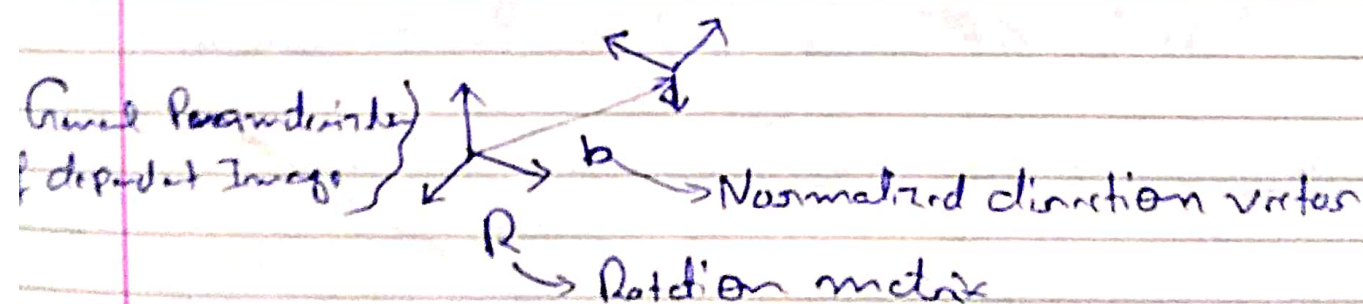 General Parameterized
of dependent Image
b
Normalized direction vector
R
Rotation matrix